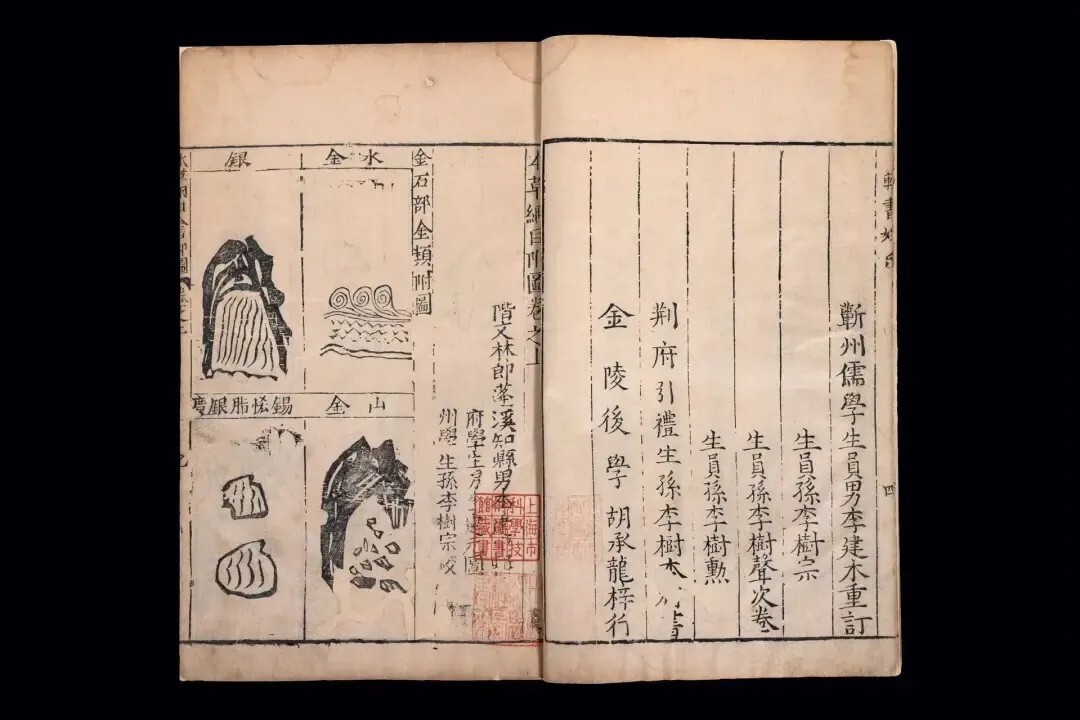 輯書姓
四
蘄州儒學生員男李建木重訂
生員孫李樹宗
生員孫李樹聲次卷
生員孫李樹勳
荊府引禮生孫李樹
金陵後學胡承龍梓行
草綱目附圖卷之上
階文林郎蓬溪知縣男李
府學生男元圖
州學生孫李樹宗校
金石部金類附圖
水金
山金
銀
錫恡脂銀
上海市
科學技
館藏書